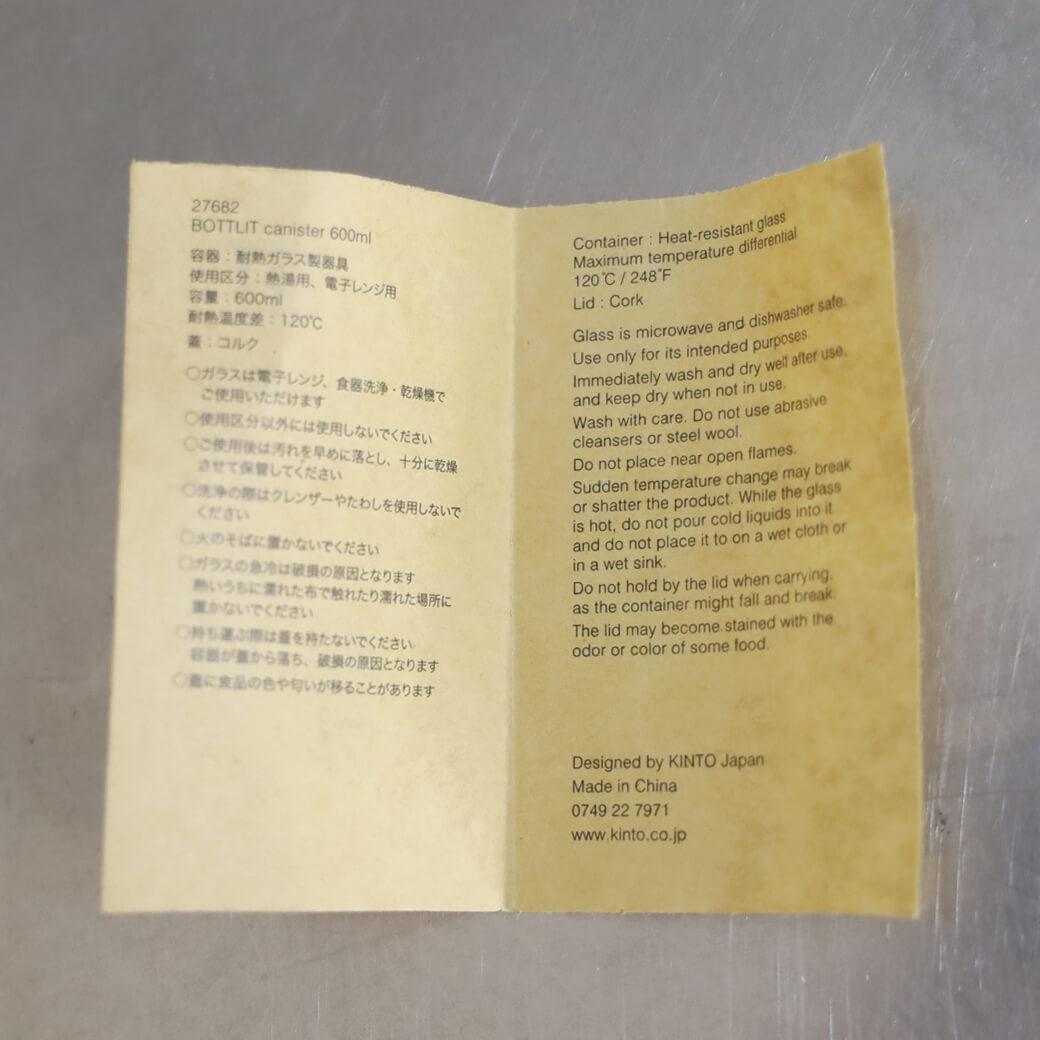 27682
BOTTLIT canister 600ml
容器：耐熱ガラス製器具
使用区分：熱湯用、電子レンジ用
容量：600ml
耐熱温度差：120℃
蓋：コルク
○ガラスは電子レンジ、食器洗浄・乾燥機で
ご使用いただけます
○使用区分以外には使用しないでください
○ご使用後は汚れを早めに落とし、十分に乾燥
させて保管してください
○洗浄の際はクレンザーやたわしを使用しないで
ください
○火のそばに置かないでください
○ガラスの急冷は破損の原因となります
熱いうちに濡れた布で触れたり濡れた場所に
置かないでください
○持ち運ぶ際は蓋を持たないでください
容器が蓋から落ち、破損の原因となります
○蓋に食品の色や匂いが移ることがあります
Container : Heat-resistant glass
Maximum temperature differential
120℃ / 248°F
Lid : Cork
Glass is microwave and dishwasher safe.
Use only for its intended purposes.
Immediately wash and dry well after use,
and keep dry when not in use.
Wash with care. Do not use abrasive
cleansers or steel wool.
Do not place near open flames.
Sudden temperature change may break
or shatter the product. While the glass
is hot, do not pour cold liquids into it
and do not place it to on a wet cloth or
in a wet sink.
Do not hold by the lid when carrying,
as the container might fall and break.
The lid may become stained with the
odor or color of some food.
Designed by KINTO Japan
Made in China
0749 22 7971
www.kinto.co.jp